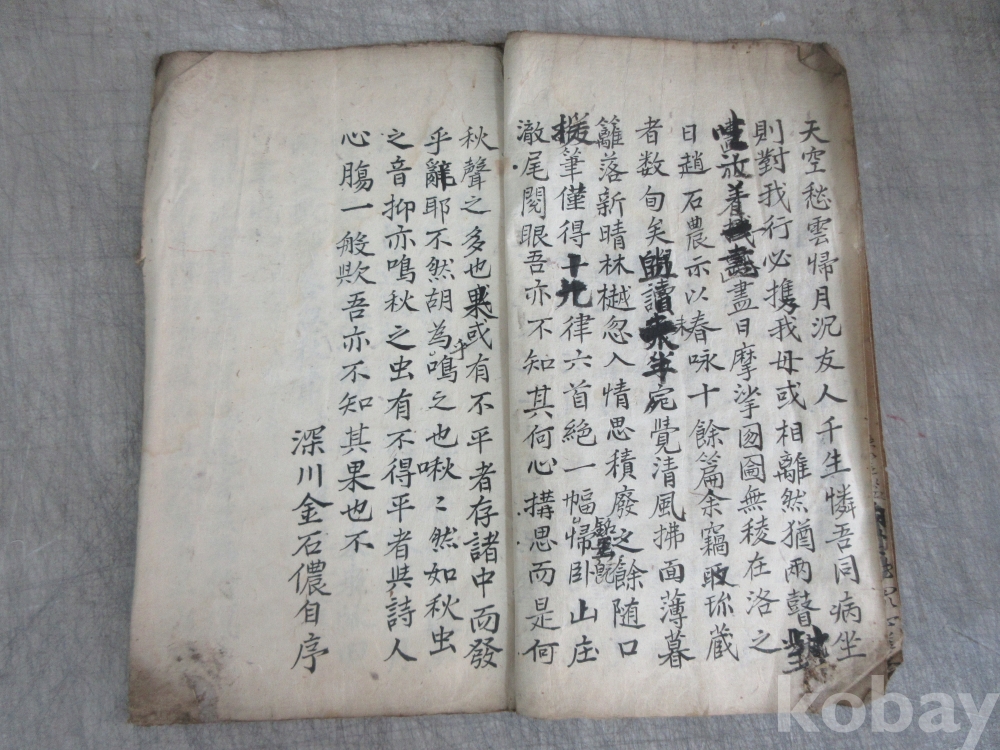 天空愁雲歸月況友人千生憐吾同病坐
則對我行必携我毋或相離然猶兩聾
放着盡日摩挲囫圇無稜在洛之
日趙石農示以春咏十餘篇余竊取珎蔵
者数旬矣讀未半宛覺清風拂面薄暮
籬落新晴林樾忽入情思積廢之餘随口
援筆僅得十九律六首絶一幅歸卧山庄
澈尾閱眼吾亦不知其何心搆思而是何
秋聲之多也果或有不平者存諸中而發
乎辭耶不然胡為乎鳴之也啾〻然如秋虫
之音抑亦鳴秋之虫有不得平者與詩人
心膓一般歟吾亦不知其果也不
深川金石儂自序
kobay